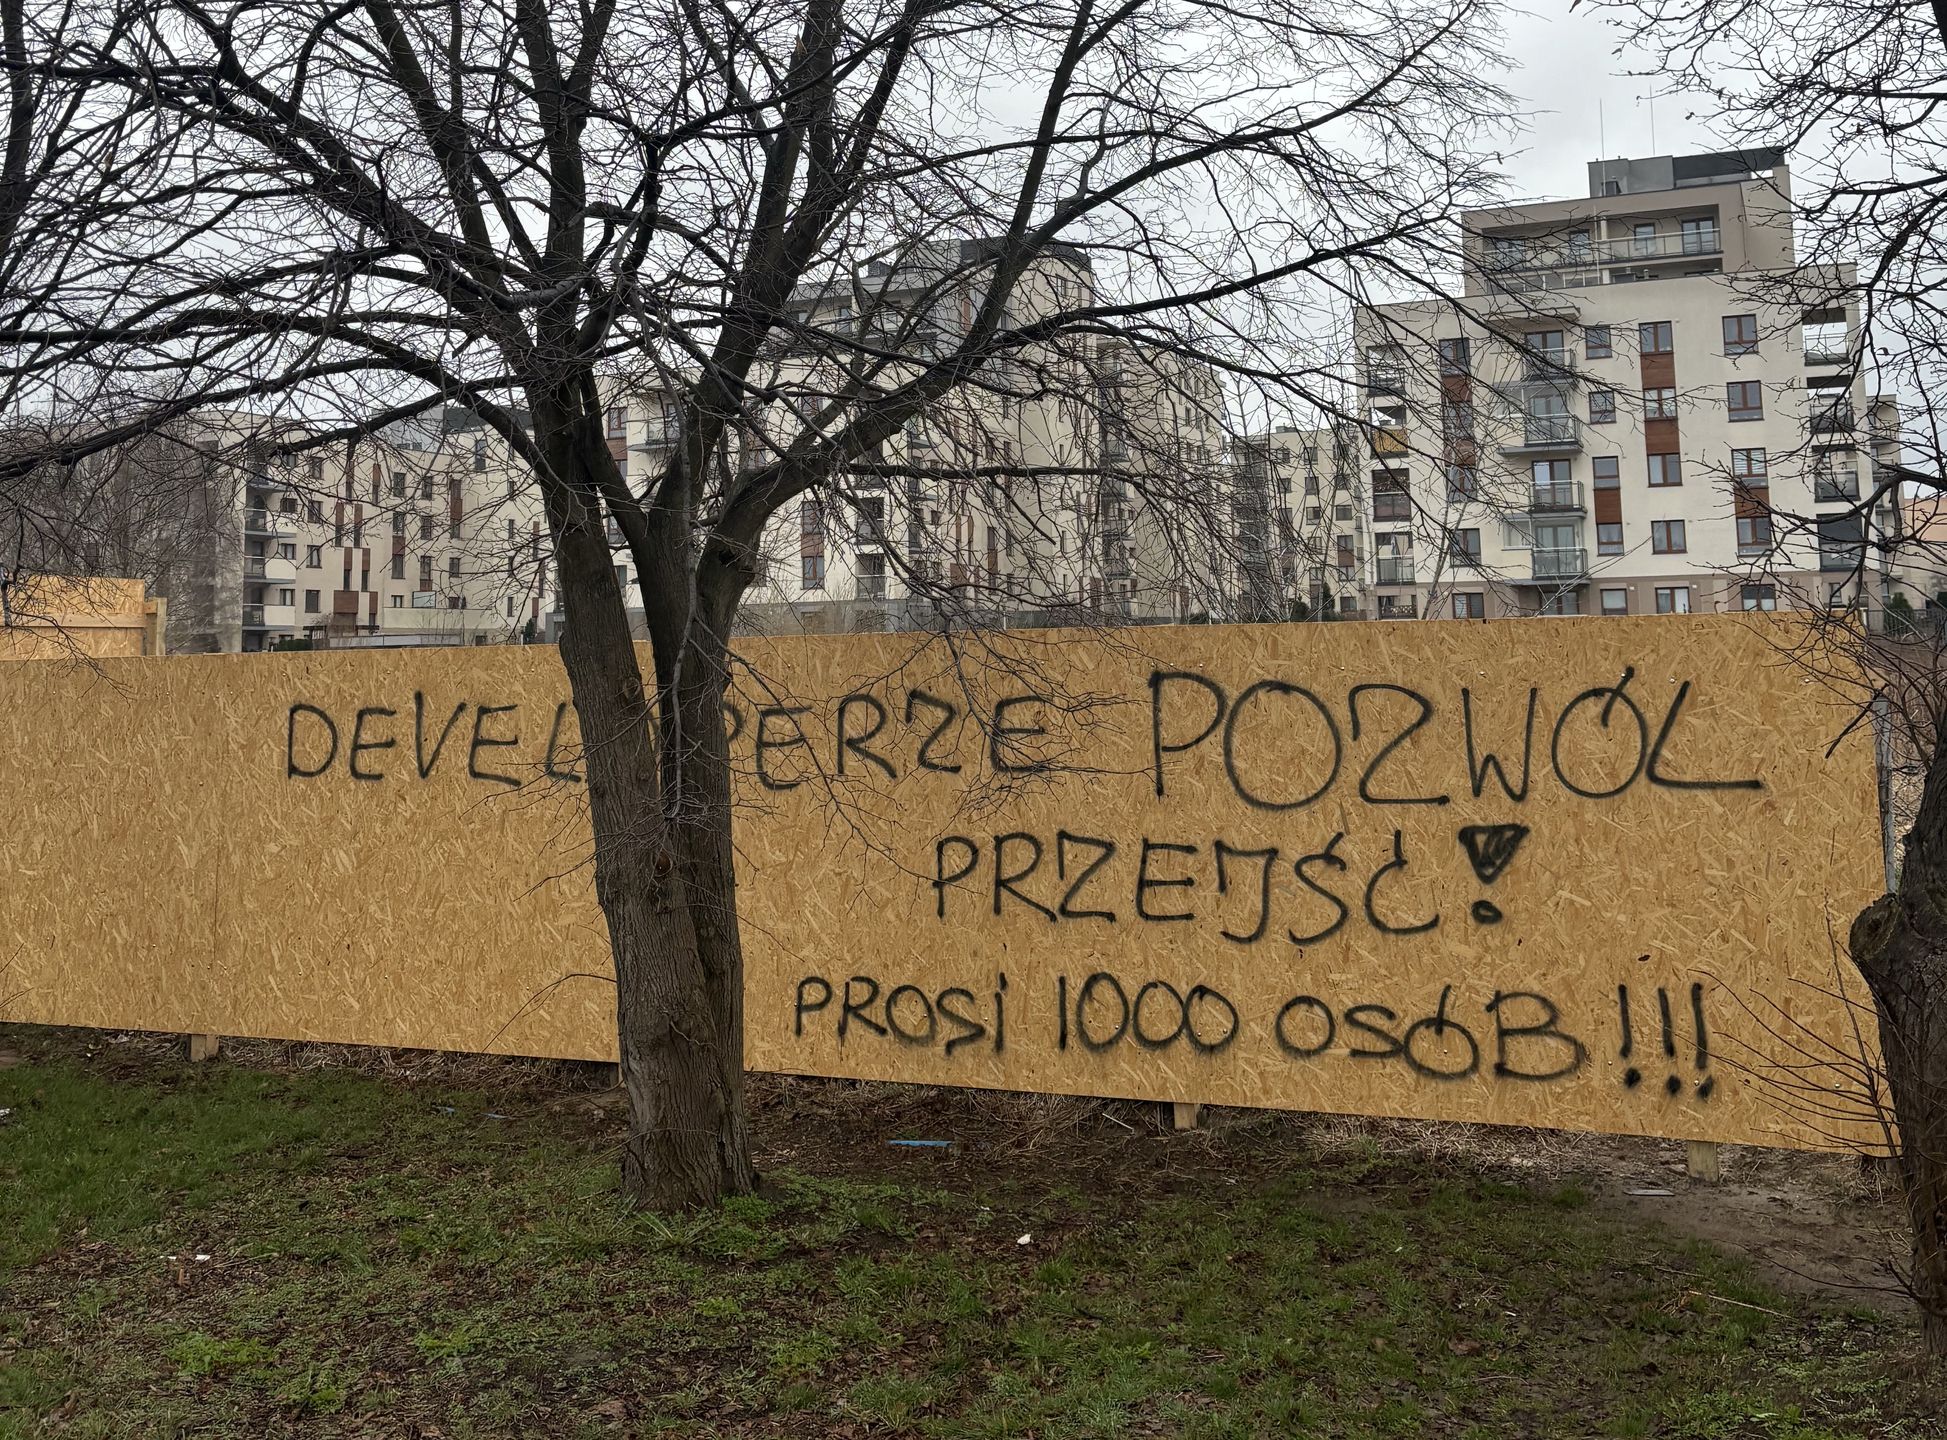 DEVELOPERZE POZWÓL
PRZEJŚĆ!
PROSi 1000 OSÓB!!!